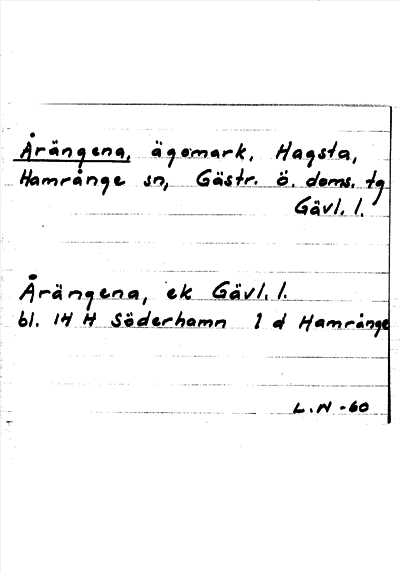 Årängena, ägomark, Hagsta,
Hamrånge sn, Gästr. ö. doms. tg
Gävl. l.
Årängena, ek Gävl. l.
bl. 14 H Söderhamn 1 d Hamrånge
L. N -60